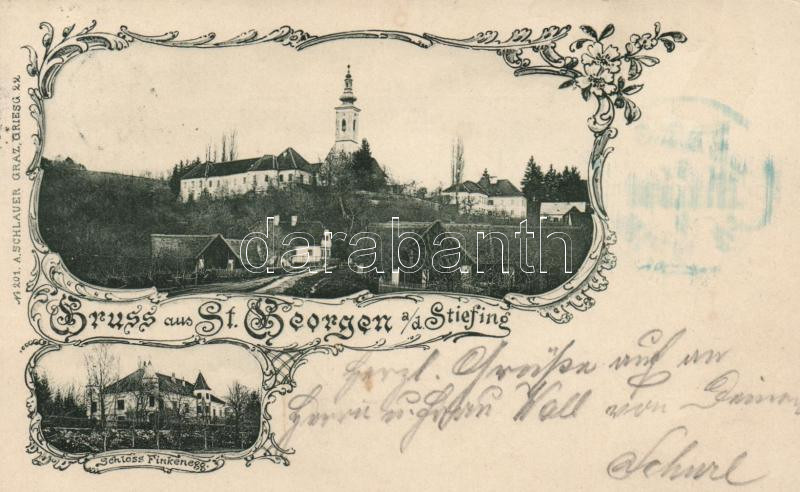 № 201. A. SCHLAUER GRAZ, GRIESG 22
darabanth
Gruss aus St. Georgen a/d. Stiefing
Schloss Finkenegg.
Herzl. Grüße auf an
Herrn u. Frau Woll von Deinem
Schurl